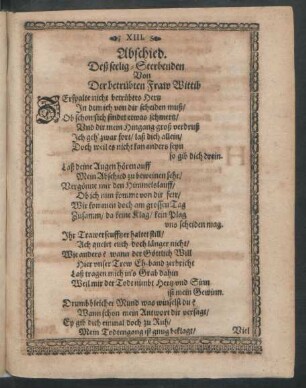 XIII.
Abschied.
Deß seelig-Sterbenden
Von
Der betrübten Fraw Wittib
ZErspalte nicht betrübtes Hertz
In dem ich von dir scheiden muß/
Ob schon sich findet etwas schmertz/
Und dir mein Hingang groß verdruß
Ich geh' zwar fort/ laß dich allein/
Doch weil es nicht kan anders seyn
so gib dich drein.
Laß deine Augen hören auff
Mein Abschied zu beweinen sehr/
Vergönne mir den Himmelslauff/
Ob ich nun komme von dir fern/
Wir kommen doch am grossen Tag
Zusamen/ da keine Klag/ kein Plag
uns scheiden mag.
Ihr Trawerseufftzer haltet still/
Ach quelet euch doch länger nicht/
Wie anders/ wann der Göttlich Will
Hier unser Trew Eh-band zerbricht
Laß tragen mich ins Grab dahin
Weil mir der Tod nimbt Hertz und Sinn
ist mein Gewinn.
Drumb bleicher Mund was winselst du
Wann schon mein Antwort dir versagt/
Ey gib dich einmal doch zu Ruh/
Mein Todengang ist gnug beklagt/
Viel